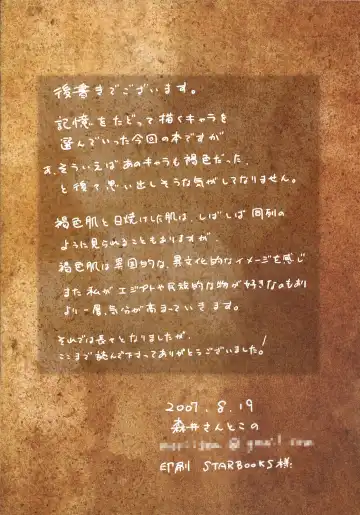 後書きでございます。
記憶をたどって描くキャラを
選んでいった今回の本ですが
あ、そういえばあのキャラも褐色だった、
と後で思い出しそうな気がしてなりません。
褐色肌と日焼けした肌は、しばしば同列の
ように見られることもありますが、
褐色肌は異国的な、異文化的なイメージを感じ
また私がエジプトや民族的な物が好きなのもあり
より一層、気分が高まっていきます。
それでは長々となりましたが、
ここまで読んで下さってありがとうございました!
2007.8.19
森井さんとこの
印刷 STARBOOKS様